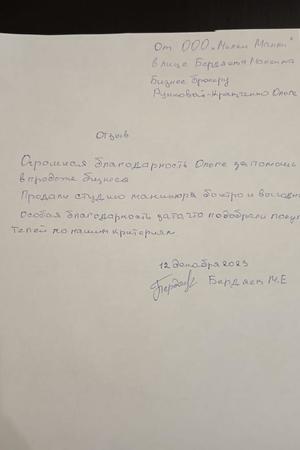 От ООО „Милки Манки"
в лице Бердаев Максима
Бизнес брокеру
Ольге
Отзыв
Огромная благодарность Ольге за помощь
в продаже бизнеса
Продали студию маникюра быстро и выгодно
Особая благодарность за то, что подобрали поку
телей по нашим критериям
12 декабря 2023
Бердаев М.Е